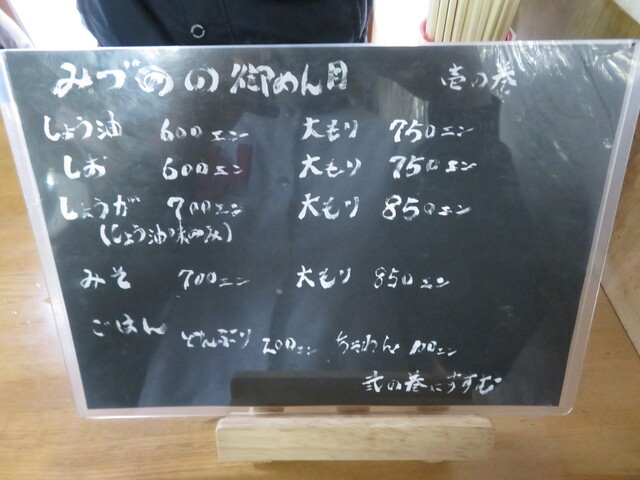 みづの の 御めん目 壱の巻
しょう油 600エン 大もり 750エン
しお 600エン 大もり 750エン
しょうが 700エン 大もり 850エン
(しょう油味のみ)
みそ 700エン 大もり 850エン
ごはん どんぶり 200エン ちゃわん 100エン
弐の巻にすすむ